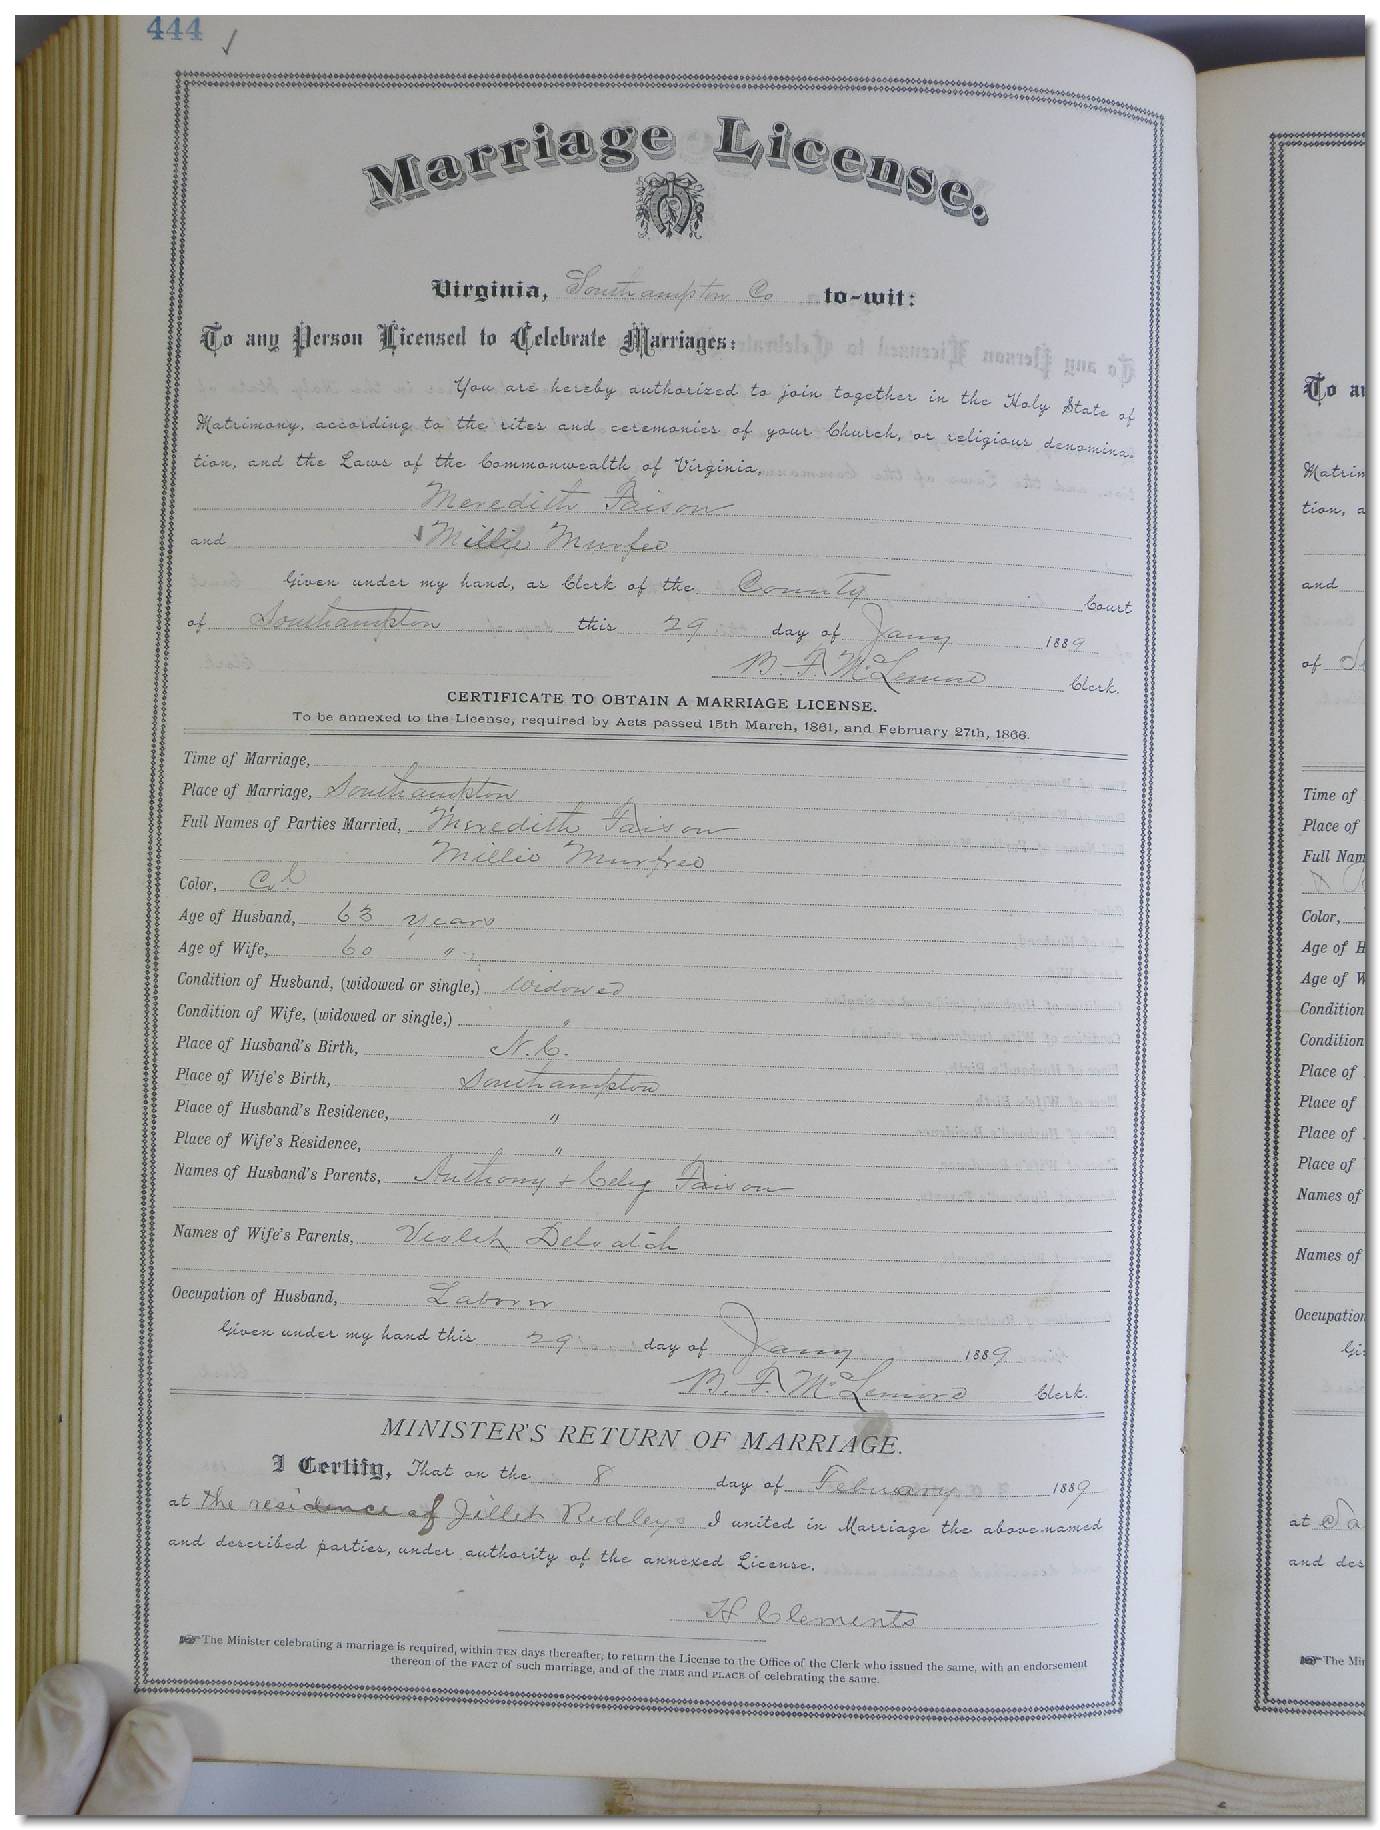 444
Marriage License.
Virginia, Southampton Co to-wit:
To any Person Licensed to Celebrate Marriages:
You are hereby authorized to join together in the Holy State of
Matrimony, according to the rites and ceremonies of your Church, or religious denomina-
tion, and the Laws of the Commonwealth of Virginia.
Meredith Faison
and Millie Murfee
Given under my hand, as Clerk of the County Court
of Southampton this 29 day of Jany 1889
B. F. McLemore Clerk.
CERTIFICATE TO OBTAIN A MARRIAGE LICENSE.
To be annexed to the License, required by Acts passed 15th March, 1861, and February 27th, 1866.
Time of Marriage,
Place of Marriage, Southampton
Full Names of Parties Married, Meredith Faison
Millie Murfree
Color, Col
Age of Husband, 63 years
Age of Wife, 60 "
Condition of Husband, (widowed or single,) Widowed
Condition of Wife, (widowed or single,) "
Place of Husband's Birth, N. C.
Place of Wife's Birth, Southampton
Place of Husband's Residence, "
Place of Wife's Residence, "
Names of Husband's Parents, Anthony + Celey Faison
Names of Wife's Parents, Violet
Occupation of Husband, Laborer
Given under my hand this 29 day of Jany 1889
B. F. McLemore Clerk.
MINISTER'S RETURN OF MARRIAGE.
I Certify, That on the 8 day of February 1889
at the residence of Ridleys I united in Marriage the above-named
and described parties, under authority of the annexed License.
H Clements
The Minister celebrating a marriage is required, within TEN days thereafter, to return the License to the Office of the Clerk who issued the same, with an endorsement
thereon of the FACT of such marriage, and of the TIME and PLACE of celebrating the same.
To a
Matrim
tion, a
and
of
Time of
Place of
Full Nam
Color,
Age of H
Age of W
Condition
Condition
Place of
Place of
Place of
Place of
Names of
Names of
Occupation
Gi
at
and des
The Min